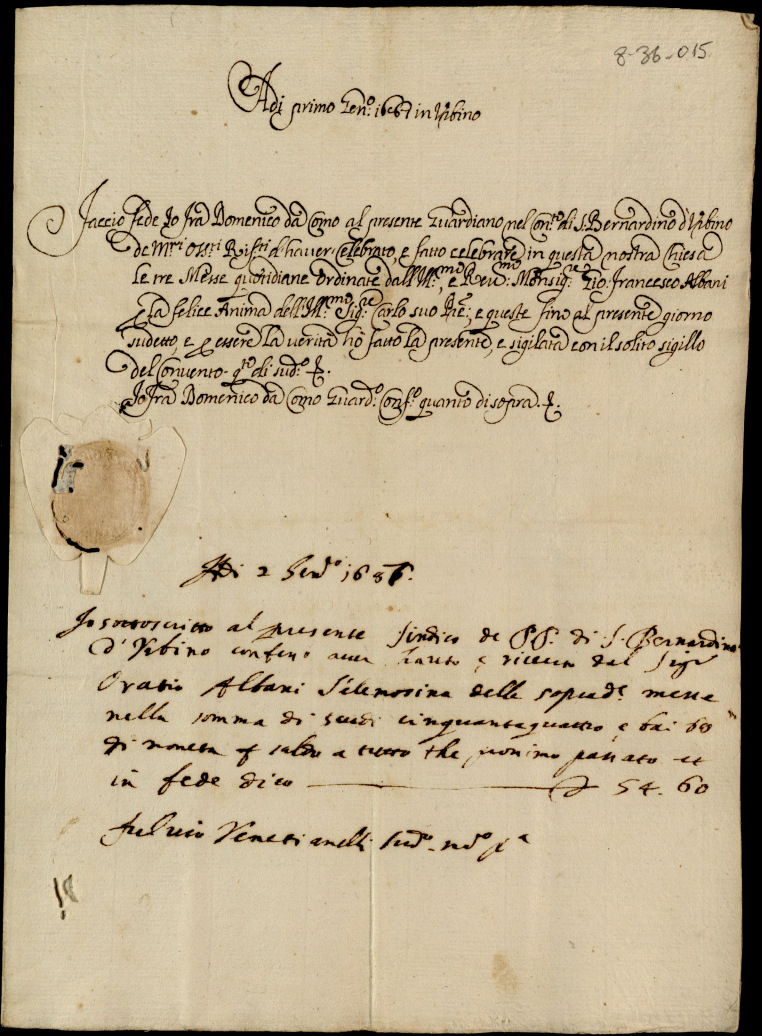 8-36-015
Adi primo Genº: 1687 in Urbino
Faccio fede Io frà Domenico da Como al presente Guardiano nel Conto di S: Bernardino d'Urbino
de Mri Ossti Rifti d'haver celebrato, e fatto celebrare in questa nostra Chiesa
le tre Messe quotidiane ordinate dall'Illmo, e Revmo: Monsigre Gio: Francesco Albani
p la felice Anima dell'Illmo Sigre Carlo suo Pre; e queste fino al presente giorno
sudetto, e p essere la verità hò fatto la presente, e sigilata con il solito sigillo
del Convento qto di sudº
Io frà Domenico da Como Guardº: Confº quanto di sopra
Adi 2 Genº
Io sottoscritto al presente Sindico de PP. di S. Bernardino
d'Urbino confesso aver hauto e riceuto dal Sigr
Oratio Albani l'elemosina delle sopradᵉ messe
nella somma di scudi cinquantaquattro e bai 60
di moneta p saldo a tutto xbre prossimo passato et
in fede dico 54. 60
Fulvio Venetianelli